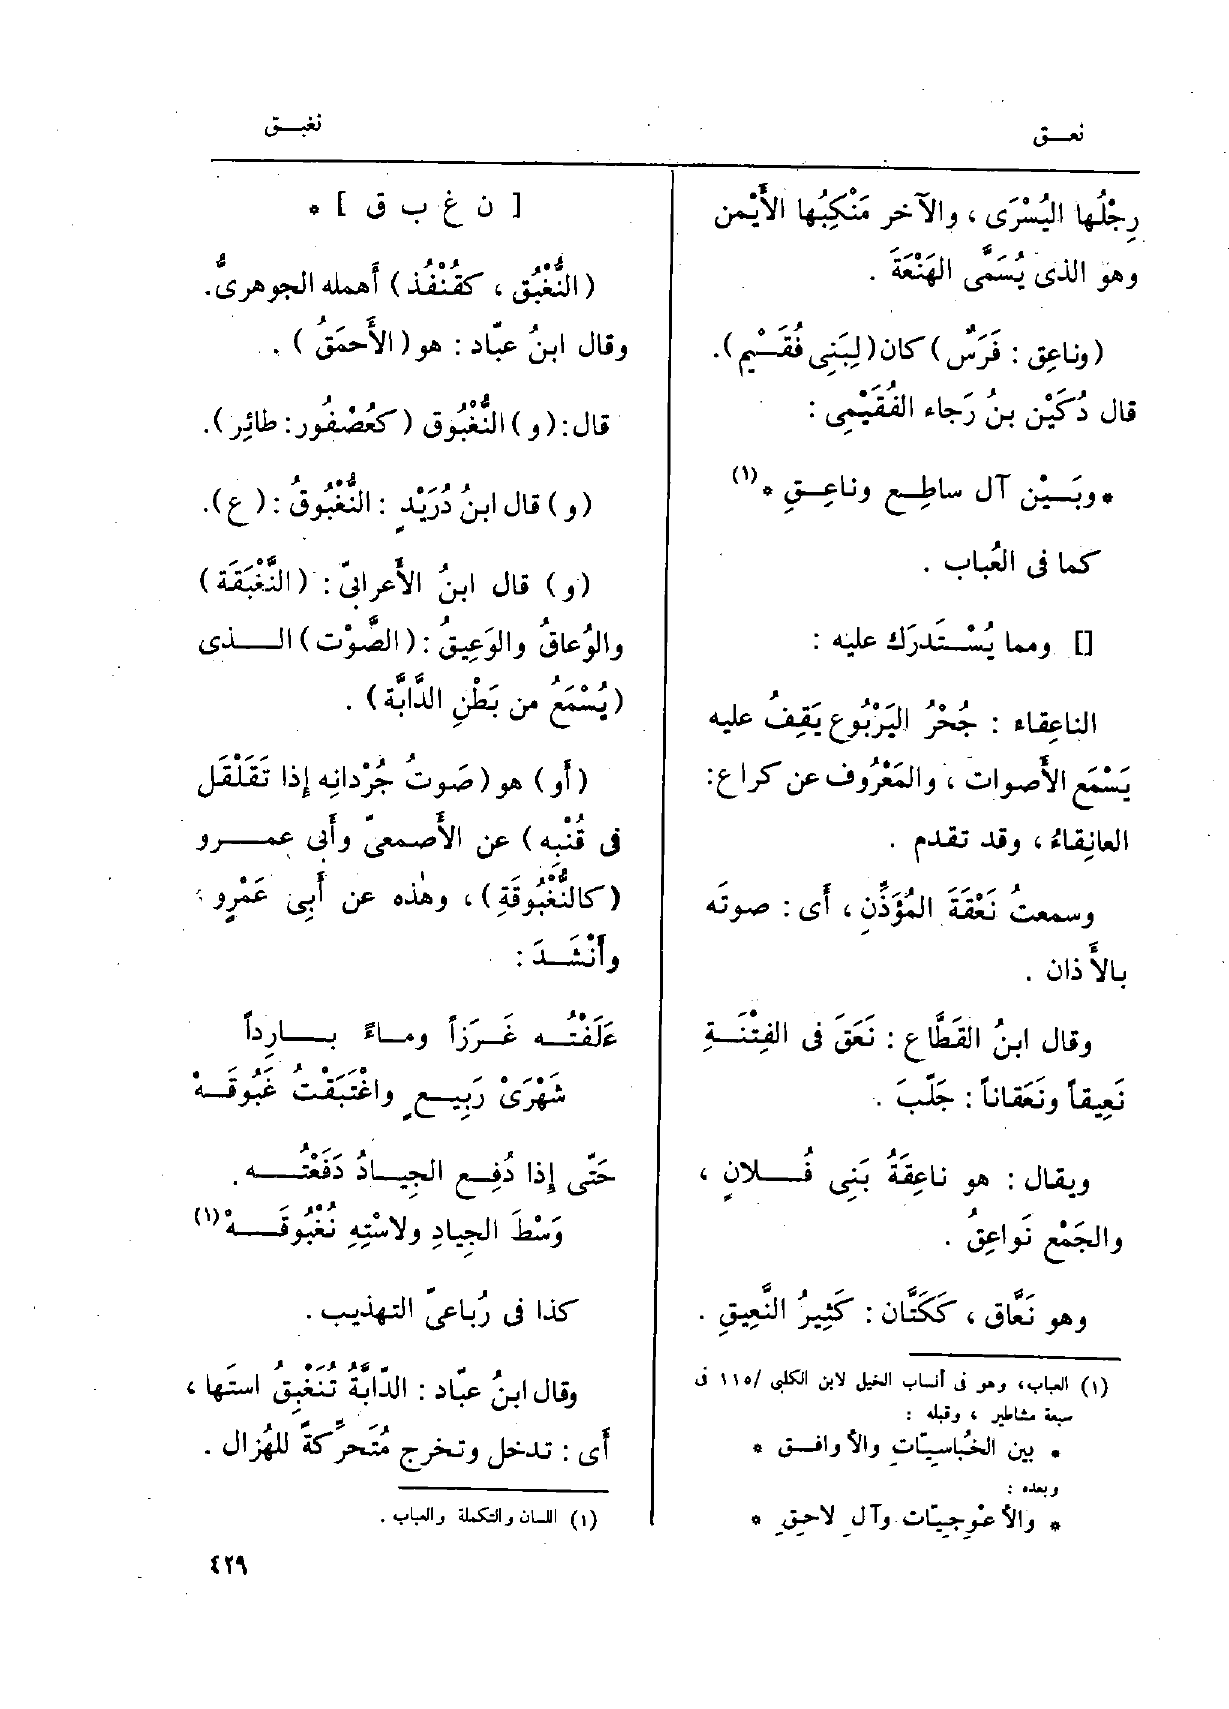 نعـق
نغبـق
رِجْلُها اليُسْرَى ، والآخر مَنْكِبُها الأَيْمن
وهو الذى يُسَمَّى الهَنْعَةَ .
(وناعِق : فَرَسٌ) كان (لِبَنِى فُقَـيْم).
قال دُكَيْن بنُ رَجاء الفُقَيْمِى :
* وبَـيْن آل ساطِـع وناعِـقِ * (١)
كما فى العُباب .
[] ومما يُسْـتَدرَك عليه :
الناعِقاء : جُحْرُ اليَرْبُوع يَقِفُ عليه
يَسْمَع الأَصوات ، والمَعْرُوف عن كراع:
العانِقاءُ ، وقد تقدم .
وسمعتُ نَعْقَةَ المُؤَذِّنِ ، أَى : صوتَه
بالأَذان .
وقال ابنُ القَطَّاع : نَعَقَ فى الفِتْنَـةِ
نَعِيقاً ونَعَقاناً : جَلَّبَ .
ويقال : هو ناعِقَةُ بَنِى فُـلانٍ ،
والجَمْع نَواعِقُ .
وهو نَعَّاق ، كَكَتَّان : كَثِيرُ النَّعِيقِ .
(١) العباب، وهو فى أنساب الخيل لابن الكلبى /١١٥ فى
سبعة مشاطير ، وقبله :
* بين الخُباسِيّاتِ والأَوافـق *
وبعده :
* والأَعْوجِيّات وآلِ لاحِقِ *
[ ن غ ب ق ] *
(النُّغْبُق ، كقُنْفُذ) أَهمله الجوهرىُّ.
وقال ابنُ عبّاد : هو (الأَحمَقُ) .
قال: (و) النُّغْبُوق (كعُصْفُور: طائِر).
(و) قال ابنُ دُرَيْدٍ : النُّغْبُوقُ : (ع).
(و) قال ابنُ الأَعرابىّ : (النَّغْبَقَة)
والوُعاقُ والوَعِيقُ : (الصَّوْت) الـذى
(يُسْمَعُ من بَطْنِ الدَّابَّة) .
(أَو) هو (صَوتُ جُرْدانِه إذا تَقَلْقَل
فى قُنْبِه) عن الأَصمعىّ وأَبى عمـرو
(كالنُّغْبُوقَةِ) ، وهٰذه عن أَبِى عَمْرٍو ،
وأَنْشَـدَ :
عَلَفْتُـه غَـرَزاً ومـاءً بـارِداً
شَهْرَىْ رَبِيـعٍ واغْتَبَقْتُ غَبُوقَـهْ
حَتّى إِذا دُفِـع الجِيـادُ دَفَعْتُـه .
وَسْطَ الجِيادِ ولاسْتِهِ نُغْبُوقَـهْ (١)
كذا فى رُباعىّ التهذيب .
وقال ابنُ عبّاد : الدّابَّةُ تُنَغْبِقُ استَها ،
أَى : تدخل وتخرج مُتَحرِّكةً للهُزال .
(١) اللسان والتكملة والعباب .
٤٢٩